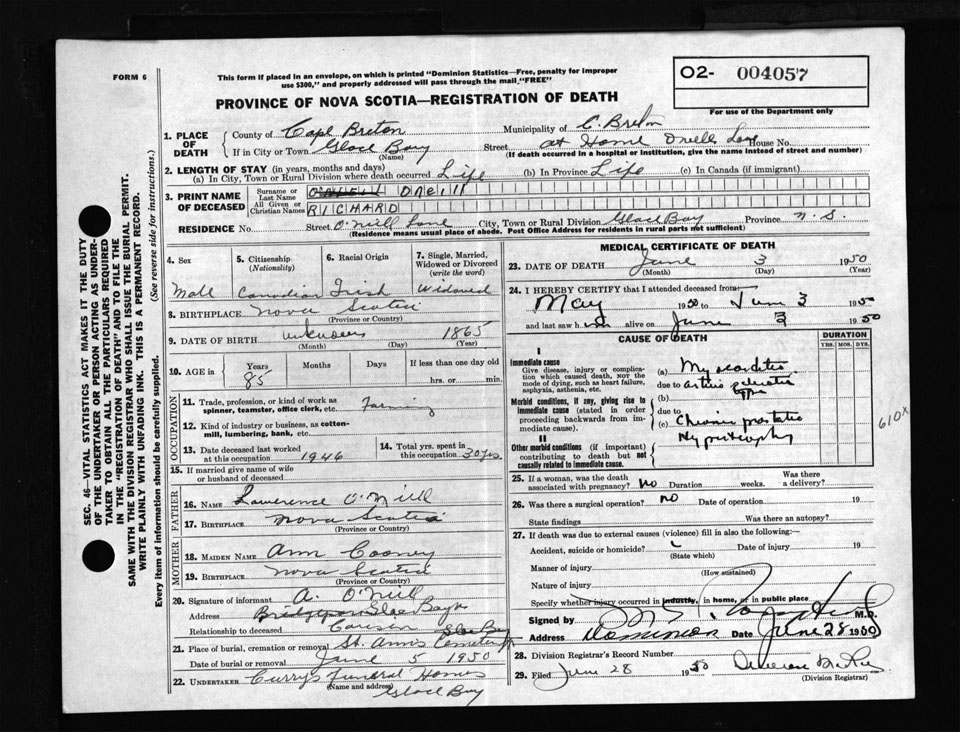 FORM 6
This form if placed in an envelope, on which is printed "Dominion Statistics—Free, penalty for improper
use $300," and properly addressed will pass through the mail, "FREE"
O2- 004057
For use of the Department only
PROVINCE OF NOVA SCOTIA—REGISTRATION OF DEATH
SEC. 46—VITAL STATISTICS ACT MAKES IT THE DUTY
OF THE UNDERTAKER OR PERSON ACTING AS UNDER-
TAKER TO OBTAIN ALL THE PARTICULARS REQUIRED
IN THE "REGISTRATION OF DEATH" AND TO FILE THE
SAME WITH THE DIVISION REGISTRAR WHO SHALL ISSUE THE BURIAL PERMIT.
WRITE PLAINLY WITH UNFADING INK. THIS IS A PERMANENT RECORD.
Every item of information should be carefully supplied. (See reverse side for instructions.)
1. PLACE OF DEATH
County of Cape Breton Municipality of C. Breton
If in City or Town Glace Bay Street at Home O'neill Lane House No.
(Name) (If death occurred in a hospital or institution, give the name instead of street and number)
2. LENGTH OF STAY (in years, months and days)
(a) In City, Town or Rural Division where death occurred Life (b) In Province Life (c) In Canada (if immigrant)
3. PRINT NAME OF DECEASED
Surname or Last Name ONEILL
All Given or Christian Names RICHARD
RESIDENCE No. Street O'Neill Lane City, Town or Rural Division Glace Bay Province N.S.
(Residence means usual place of abode. Post Office Address for residents in rural parts not sufficient)
4. Sex 5. Citizenship (Nationality) 6. Racial Origin 7. Single, Married, Widowed or Divorced (write the word)
Male Canadian Irish Widowed
8. BIRTHPLACE Nova Scotia
(Province or Country)
9. DATE OF BIRTH unknown 1865
(Month) (Day) (Year)
10. AGE in Years Months Days If less than one day old
85 hrs. or min.
OCCUPATION
11. Trade, profession, or kind of work as
spinner, teamster, office clerk, etc. Farming
12. Kind of industry or business, as cotton-
mill, lumbering, bank, etc.
13. Date deceased last worked
at this occupation 1946
14. Total yrs. spent in
this occupation 30 yrs.
15. If married give name of wife
or husband of deceased
FATHER
16. NAME Lawrence O'Neill
17. BIRTHPLACE Nova Scotia
(Province or Country)
MOTHER
18. MAIDEN NAME Ann Cooney
19. BIRTHPLACE Nova Scotia
(Province or Country)
20. Signature of informant A. O'Neill
Address Bridgeport Glace Bay
Relationship to deceased Cousin
21. Place of burial, cremation or removal St. Anns Cemetery Glace Bay
Date of burial or removal June 5 1950
22. UNDERTAKER Curry's Funeral Homes
(Name and address) Glace Bay
MEDICAL CERTIFICATE OF DEATH
23. DATE OF DEATH June 3 1950
(Month) (Day) (Year)
24. I HEREBY CERTIFY that I attended deceased from:
May 1950 to June 3 1950
and last saw h im alive on June 3 1950
CAUSE OF DEATH
DURATION
YRS. MOS. DYS.
I
Immediate cause
Give disease, injury or complica-
tion which caused death, not the
mode of dying, such as heart failure,
asphyxia, asthenia, etc.
(a) Myocarditis
due to
type
Morbid conditions, if any, giving rise to
immediate cause (stated in order
proceeding backwards from im-
mediate cause).
(b)
due to
(c) Chronic prostatic
Hypertrophy
610X
II
Other morbid conditions (if important)
contributing to death but not
causally related to immediate cause.
25. If a woman, was the death
associated with pregnancy? No Duration weeks. Was there
a delivery?
26. Was there a surgical operation? no Date of operation 19
State findings Was there an autopsy?
27. If death was due to external causes (violence) fill in also the following:—
Accident, suicide or homicide? Date of injury 19
(State which)
Manner of injury
(How sustained)
Nature of injury
Specify whether injury occurred in industry, in home, or in public place
Signed by M.D.
Address Dominion Date June 28 1950
28. Division Registrar's Record Number
29. Filed June 28 1950
(Division Registrar)